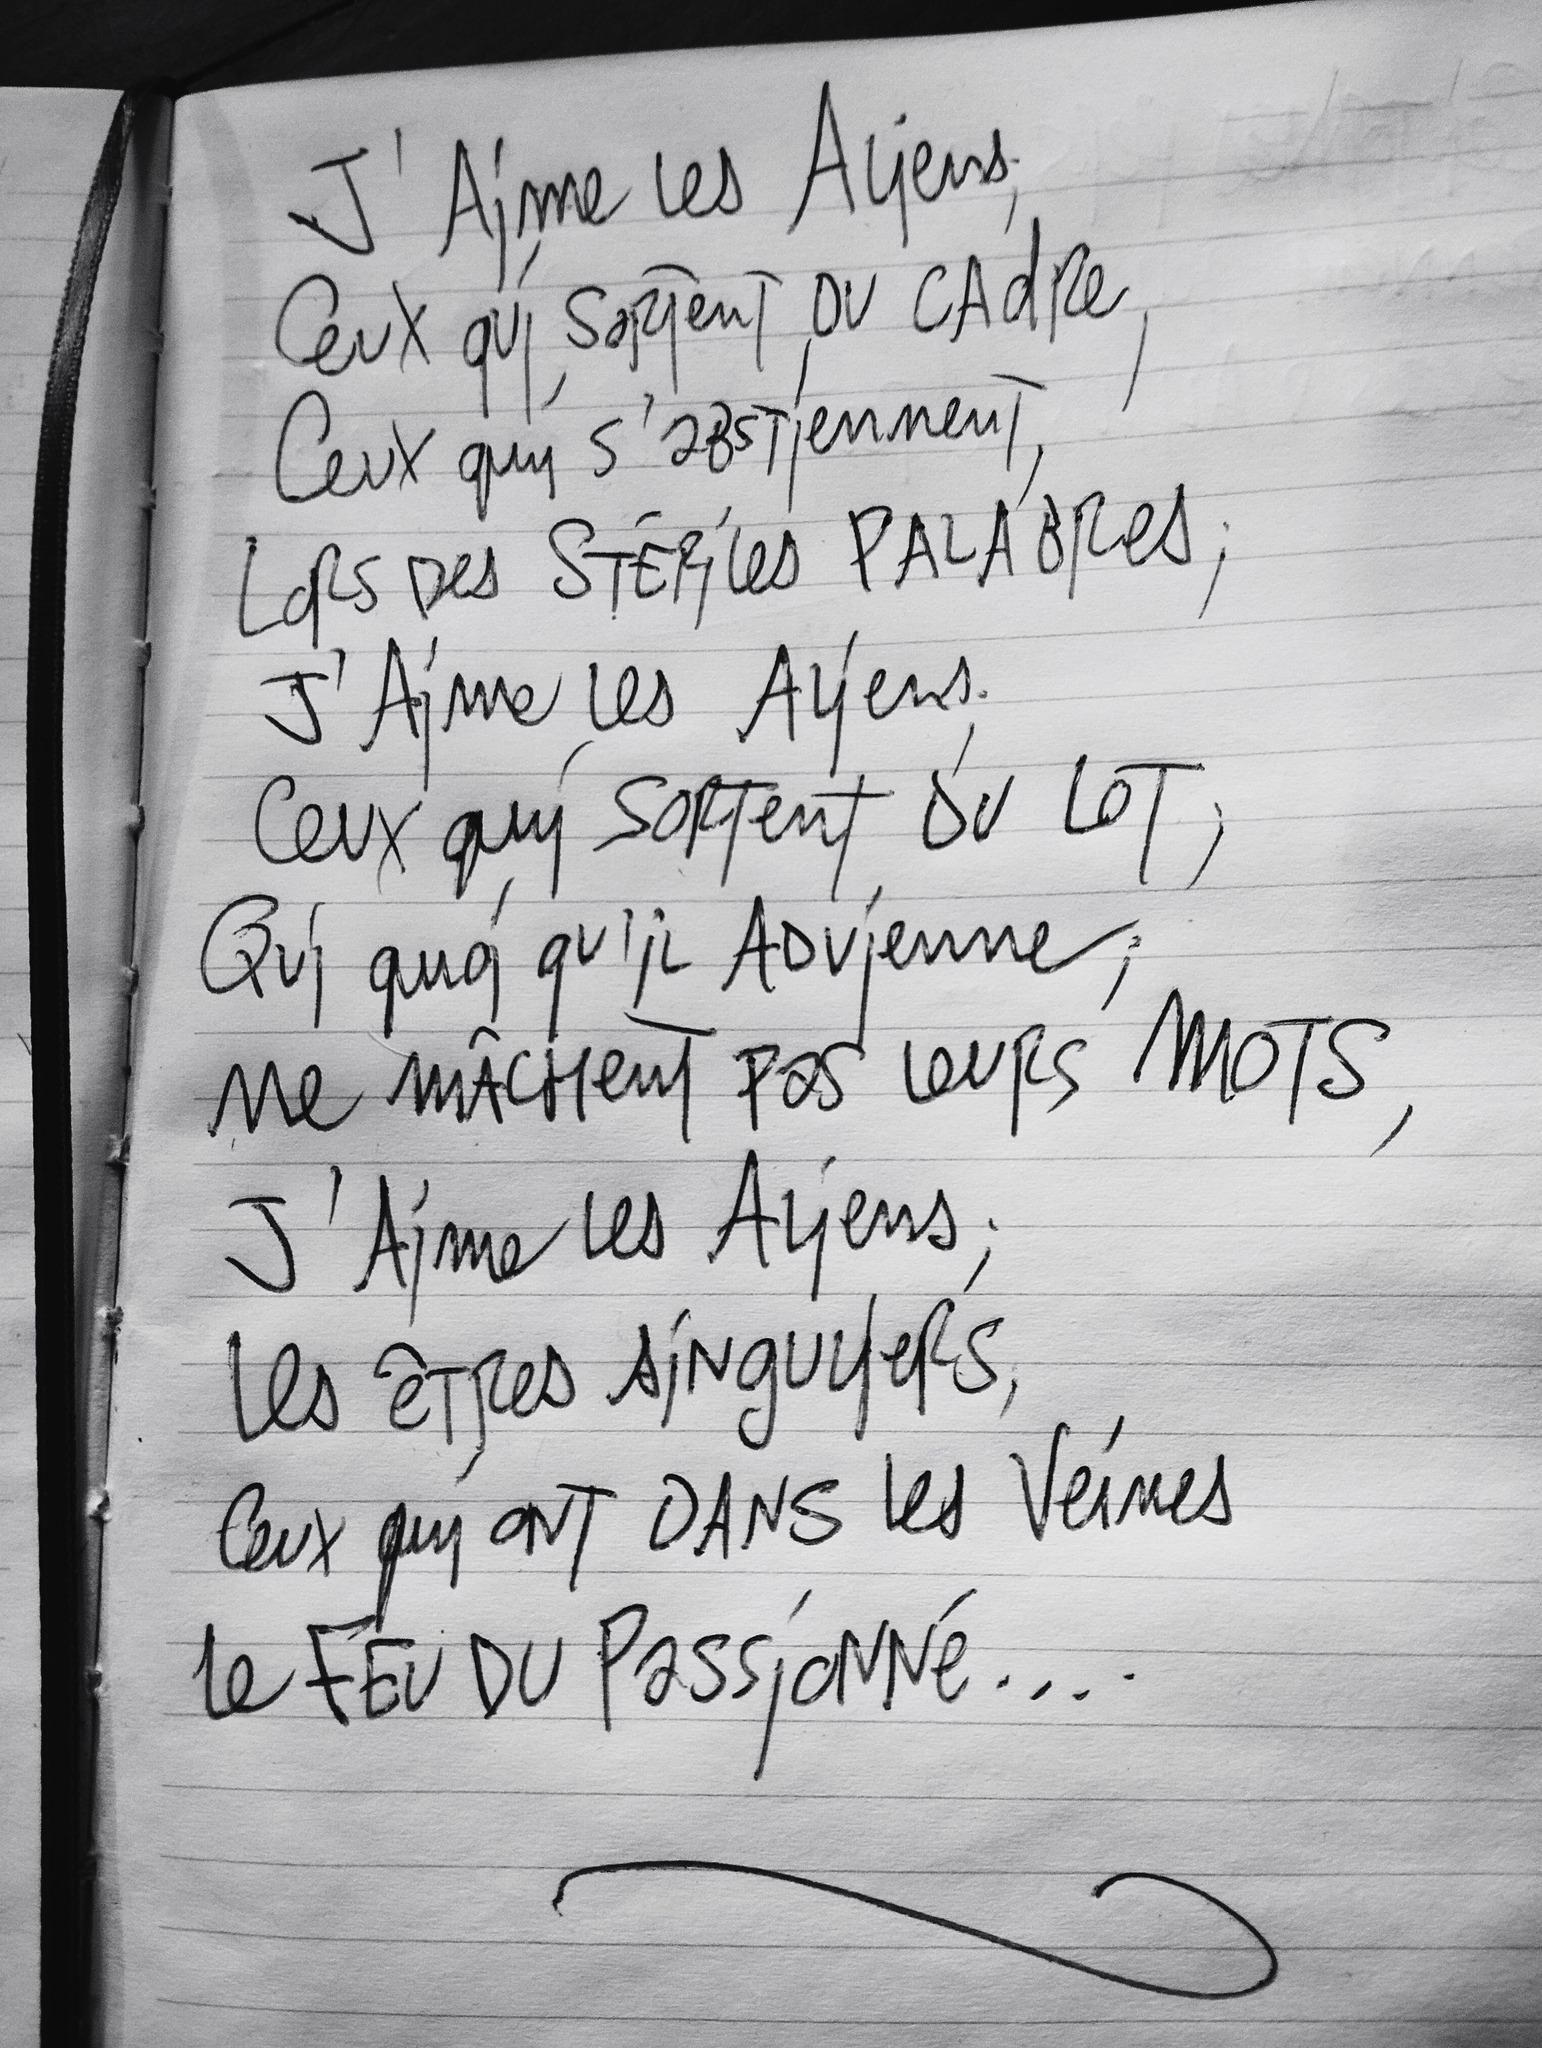 J'Aime les Aliens,
Ceux qui sortent du cadre,
Ceux qui s'abstiennent,
Lors des stériles PALABRES;
J'Aime les Aliens,
Ceux qui sortent du LOT;
Qui quoi qu'il Advienne;
Ne mâchent pas leurs MOTS,
J'Aime les Aliens;
Les êtres singuliers,
Ceux qui ont DANS les Veines
le FEU DU Passionné....